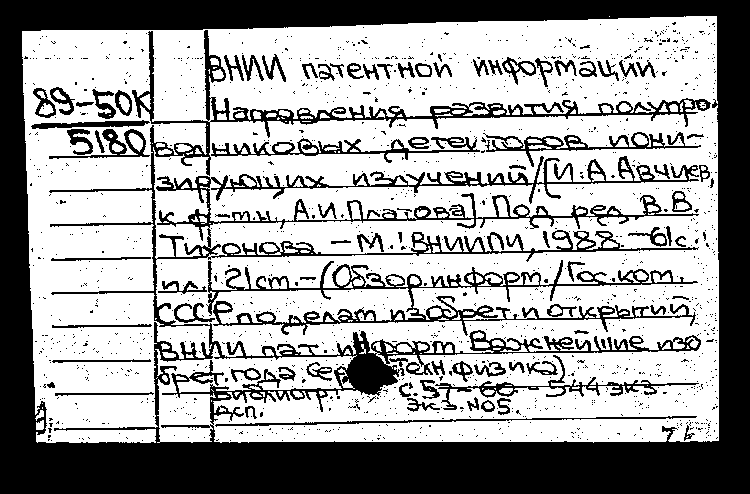 ВНИИ патентной информации.
89-50К Направления развития полупро-
5180 водниковых детекторов иони-
зирующих излучений/[И.А.Авчиев,
к.ф-т.н., А.И.Платова]; Под ред. В.В.
Тихонова. - М.: ВНИИПИ, 1988. - 61с.:
ил.; 21см. - (Обзор.информ./Гос.ком.
СССР по делам изобрет. и открытий,
ВНИИ пат. информ. Важнейшие изо-
брет. года. Сер. Техн.физика)
Библиогр.: с.57-60 - 544 экз.
дсп. экз.№05.